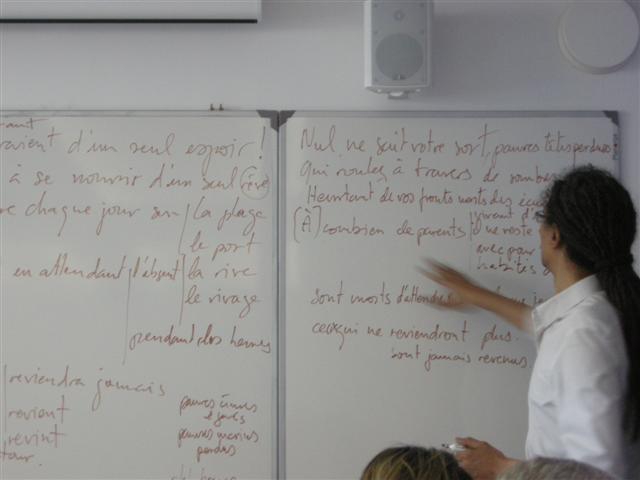 d'un seul espoir !
à se nourrir d'un seul rêve
chaque jour
la plage
le port
en attendant l'absent la rive
le rivage
pendant des heures
reviendra jamais
revient
revint
pauvres âmes
pauvres marins
perdus
Nul ne sait votre sort, pauvres têtes perdues
Qui roulez à travers de sombres
Heurtant de vos fronts morts des
[À] combien de parents
ne reste
avec pour
sont morts d'attendre
ceux qui ne reviendront plus.
sont jamais revenus.